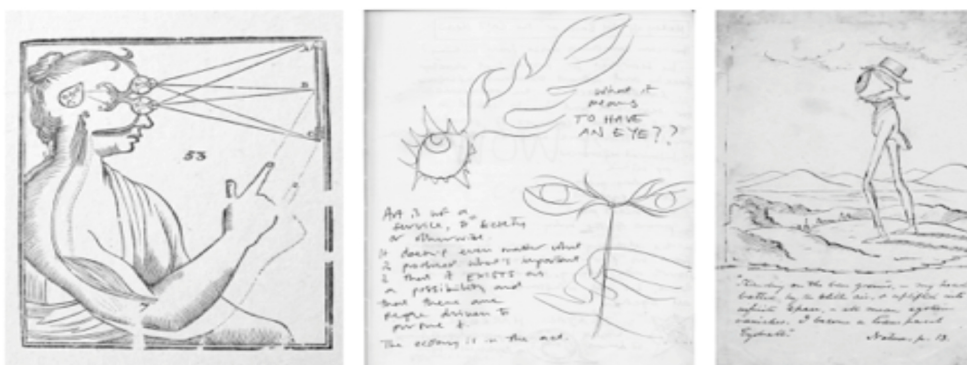 A
B
53
what it
means
TO HAVE
AN EYE??
Art is not a
service, to society
or otherwise.
It doesn't even matter what
is produced what's important
is that it EXISTS as
a possibility and
that there are
people driven to
pursue it.
The ecstasy is in the act.
"Standing on the bare ground, – my head
bathed by the blithe air, & uplifted into
infinite space, – all mean egotism
vanishes. I become a transparent
Eyeball."
Nature, p. 13.